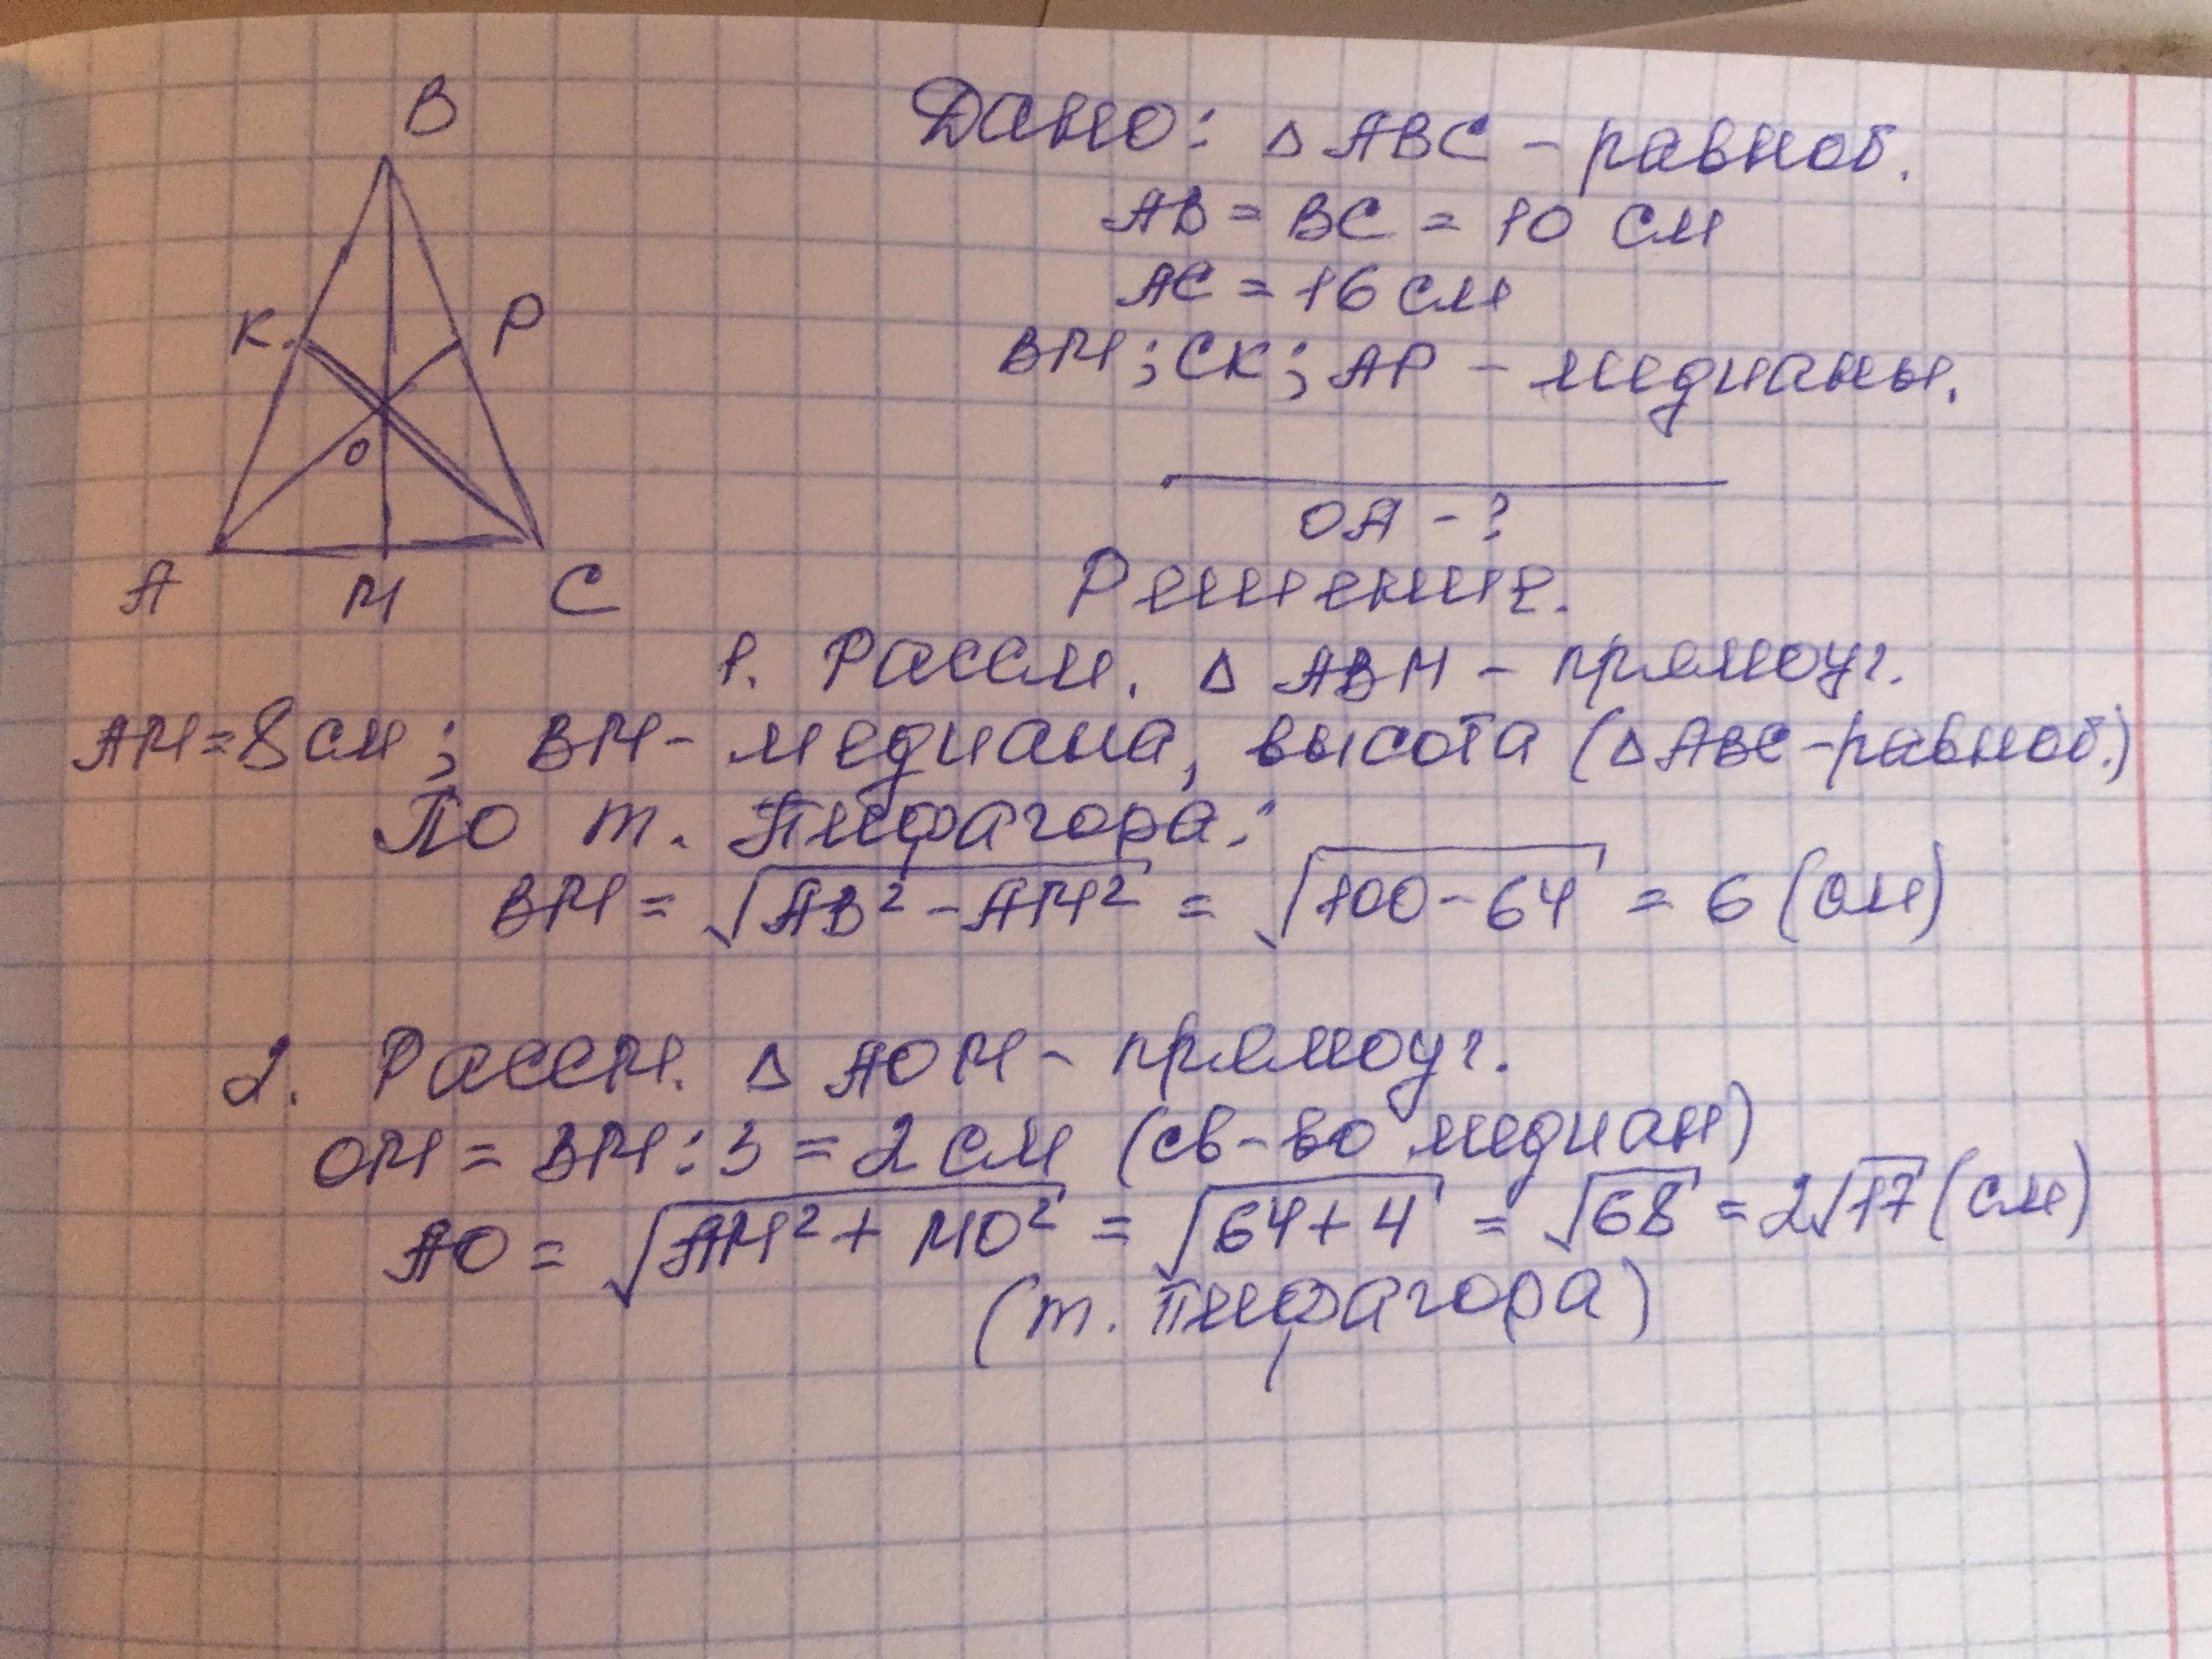 B
Дано: △ ABC – равноб.
AB = BC = 10 см
AC = 16 см
K P
BM; CK; AP – медианы.
O
OA – ?
A M C
Решение.
1. Рассм. △ ABM – прямоуг.
AM = 8 см; BM – медиана, высота (△ ABC – равноб.)
По т. Пифагора:
BM = √(AB² – AM²) = √(100 – 64) = 6 (см)
2. Рассм. △ AOM – прямоуг.
OM = BM : 3 = 2 см (св-во медиан)
AO = √(AM² + MO²) = √(64 + 4) = √68 = 2√17 (см)
(т. Пифагора)